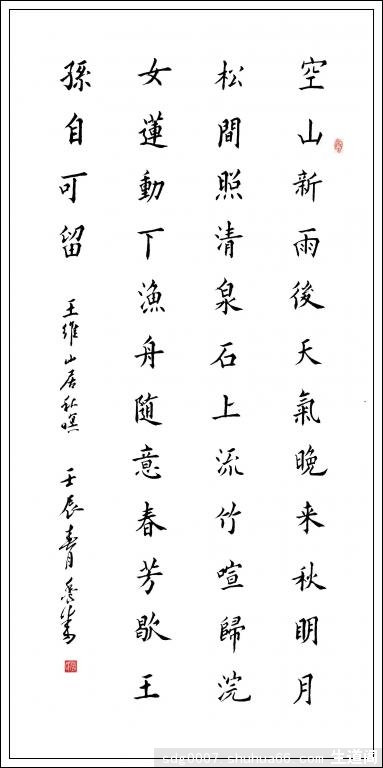 空山新雨後天氣晚来秋明月
松間照清泉石上流竹喧歸浣
女蓮動下漁舟随意春芳歇王
孫自可留
王維山居秋暝
壬辰青
sdg0007.shuhua66.com 生道阁